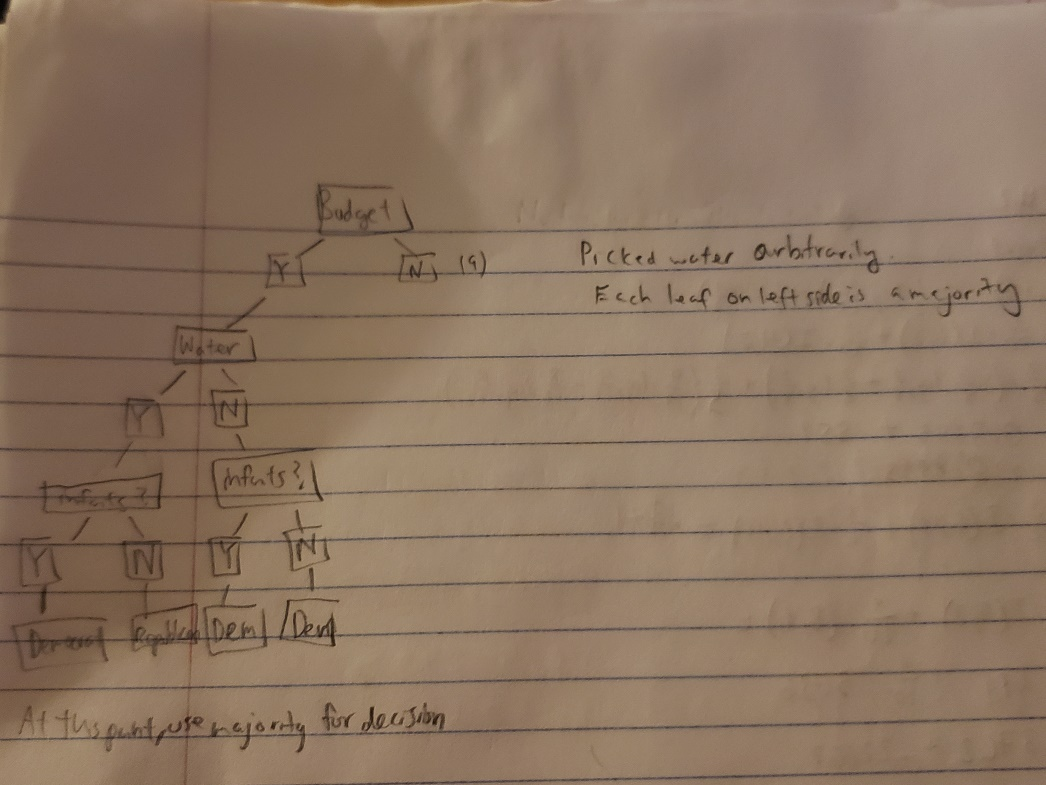 Budget
Y N (9)
Picked water arbitrarily.
Each leaf on left side is a majority
Water
Y N
infants? infants?
Y N Y N
Democrat Republican Dem Dem
At this point, use majority for decision